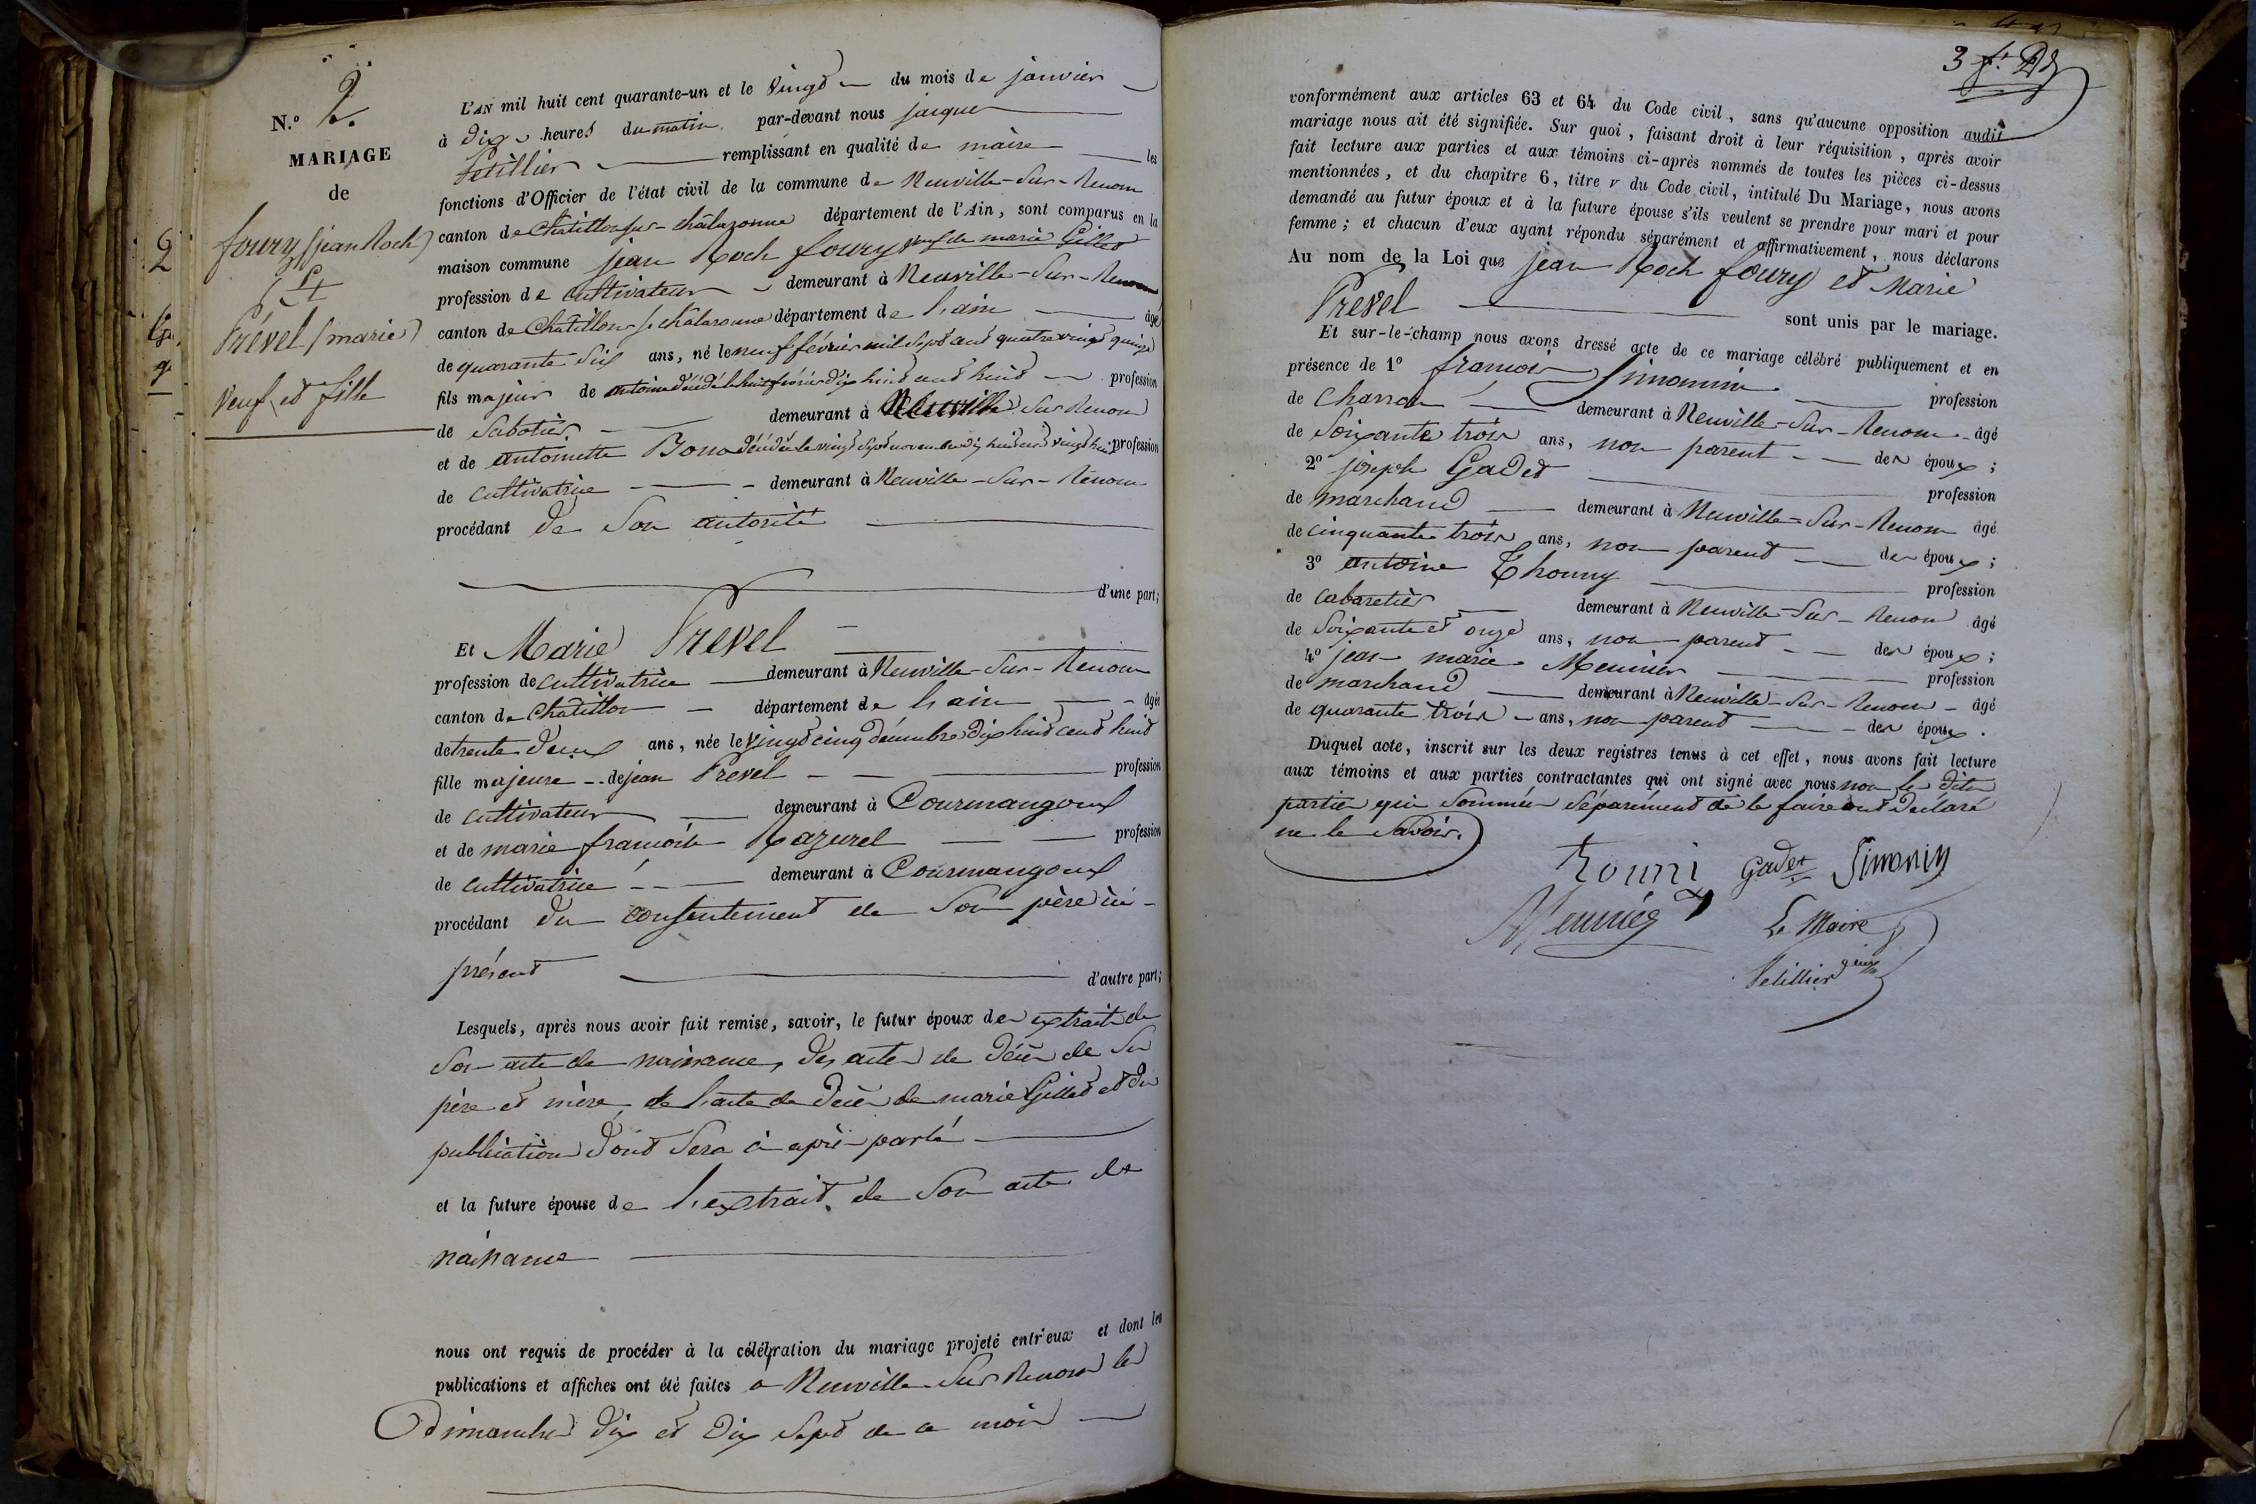 N.º 2.
MARIAGE
de
foury (jean Roch)
Et
Prével (marie)
veuf et fille
2
L'AN mil huit cent quarante-un et le vingt du mois de janvier
à dix heures du matin par-devant nous jacque
Petillier remplissant en qualité de maire les
fonctions d'Officier de l'état civil de la commune de Neuville-sur-Renom
canton de Chatillon sur-chalaronne département de l'Ain, sont comparus en la
maison commune jean Roch foury veuf de marie Gillet
profession de cultivateur demeurant à Neuville-sur-Renom
canton de Chatillon s. chalaronne département de l'ain âgé
de quarante six ans, né le neuf février mil sept cent quatre vingt quinze
fils majeur de antoine décédé le huit février dix huit cent huit profession
de sabotier demeurant à Neuville sur Renom
et de antoinette Bona décédée le vingt sept novembre dix huit cent vingt huit profession
de cultivatrice demeurant à Neuville-sur-Renom
procédant de son autorité
d'une part;
Et Marie Prevel
profession de cultivatrice demeurant à Neuville-sur-Renom
canton de Chatillon département de l'ain âgée
de trente deux ans, née le vingt cinq décembre dix huit cent huit
fille majeure de jean Prevel profession
de cultivateur demeurant à Courmangoux
et de marie françoise Razurel profession
de cultivatrice demeurant à Courmangoux
procédant du consentement de son père ici
présent d'autre part;
Lesquels, après nous avoir fait remise, savoir, le futur époux de extrait de
son acte de naissance, des actes de décès de ses
père et mère, de l'acte de decès de marie Gillet et des
publications dont sera ci après parlé
et la future épouse de l'extrait de son acte de
naissance
nous ont requis de procéder à la célébration du mariage projeté entr'eux et dont les
publications et affiches ont été faites a Neuville sur Renom les
Dimanches dix et dix sept de ce mois
3 f.
conformément aux articles 63 et 64 du Code civil, sans qu'aucune opposition audit
mariage nous ait été signifiée. Sur quoi, faisant droit à leur réquisition, après avoir
fait lecture aux parties et aux témoins ci-après nommés de toutes les pièces ci-dessus
mentionnées, et du chapitre 6, titre v du Code civil, intitulé Du Mariage, nous avons
demandé au futur époux et à la future épouse s'ils veulent se prendre pour mari et pour
femme; et chacun d'eux ayant répondu séparément et affirmativement, nous déclarons
Au nom de la Loi que jean Roch foury et Marie
Prevel sont unis par le mariage.
Et sur-le-champ nous avons dressé acte de ce mariage célébré publiquement et en
présence de 1º françois Simonnin profession
de charron demeurant à Neuville-sur-Renom âgé
de soixante trois ans, non parent des époux;
2º joseph Gadet profession
de marchand demeurant à Neuville-sur-Renom âgé
de cinquante trois ans, non parent des époux;
3º antoine Thouny profession
de cabaretier demeurant à Neuville-sur-Renom âgé
de soixante et onze ans, non parent des époux;
4º jean marie Meunier profession
de marchand demeurant à Neuville-sur-Renom âgé
de quarante trois ans, non parent des époux.
Duquel acte, inscrit sur les deux registres tenus à cet effet, nous avons fait lecture
aux témoins et aux parties contractantes qui ont signé avec nous non les dites
parties qui sommées séparément de le faire ont déclaré
ne le savoir.
Touni Gadet Simonin
Meunier Le Maire
Petillier